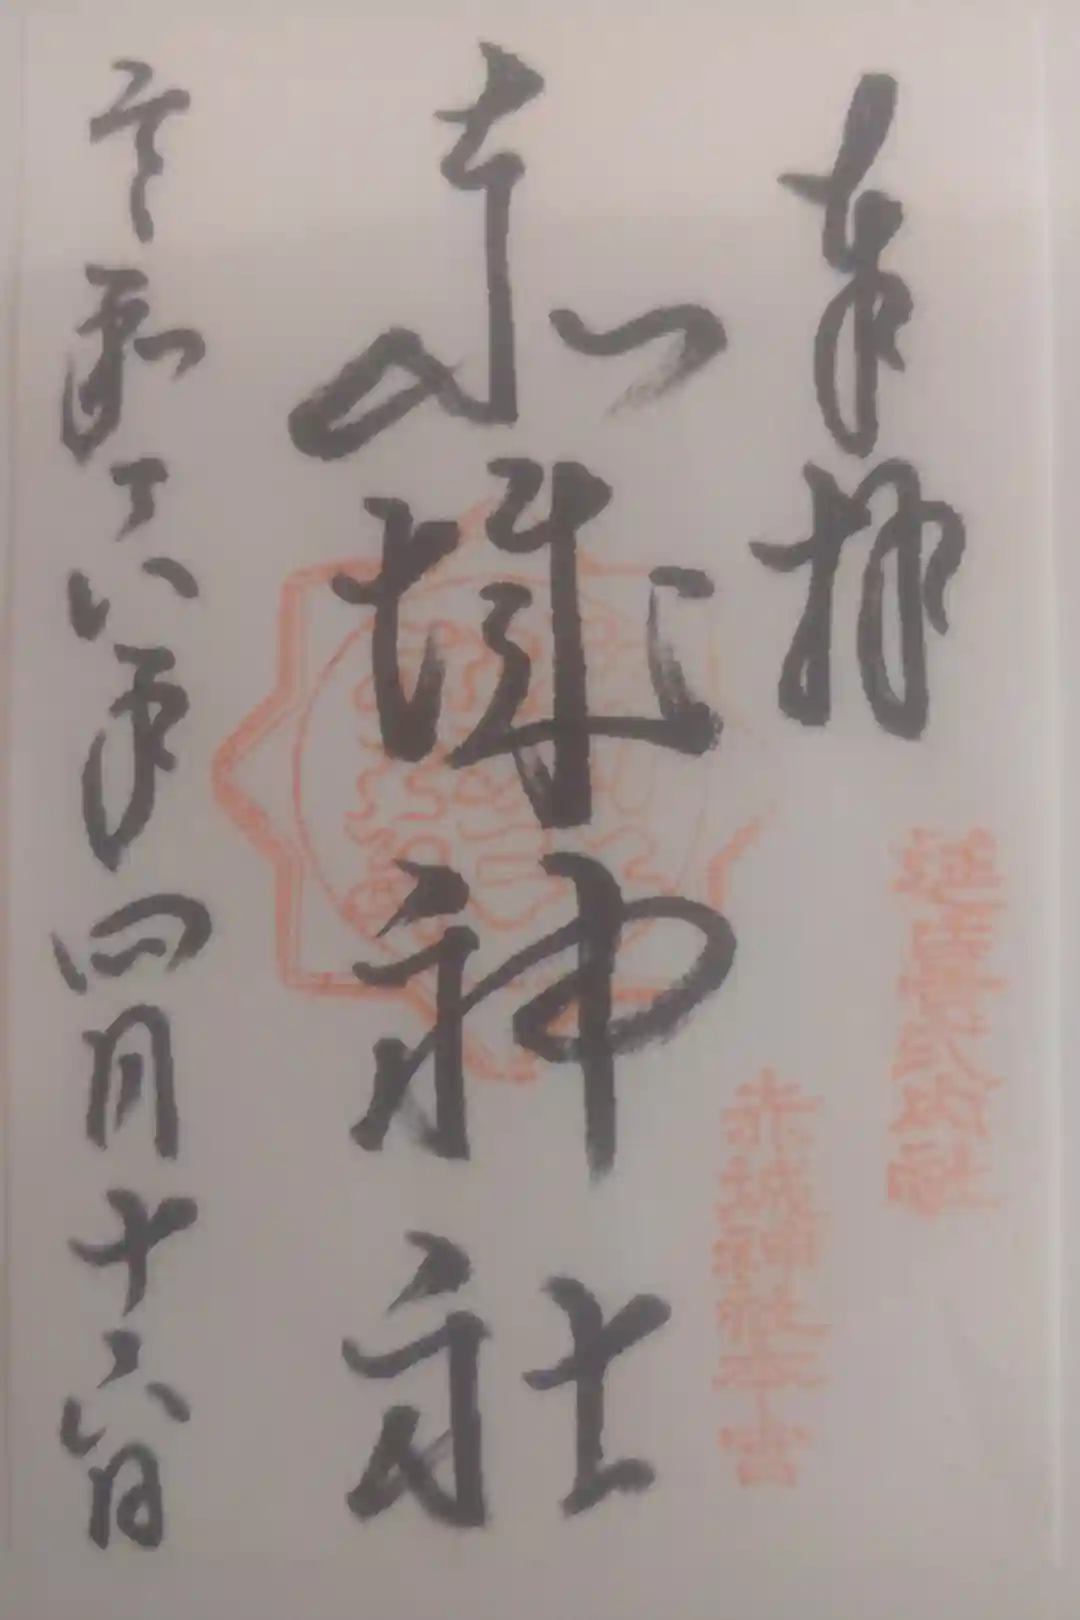 奉拝
延喜式内社
赤城神社本宮
赤城神社
令和六年四月十六日